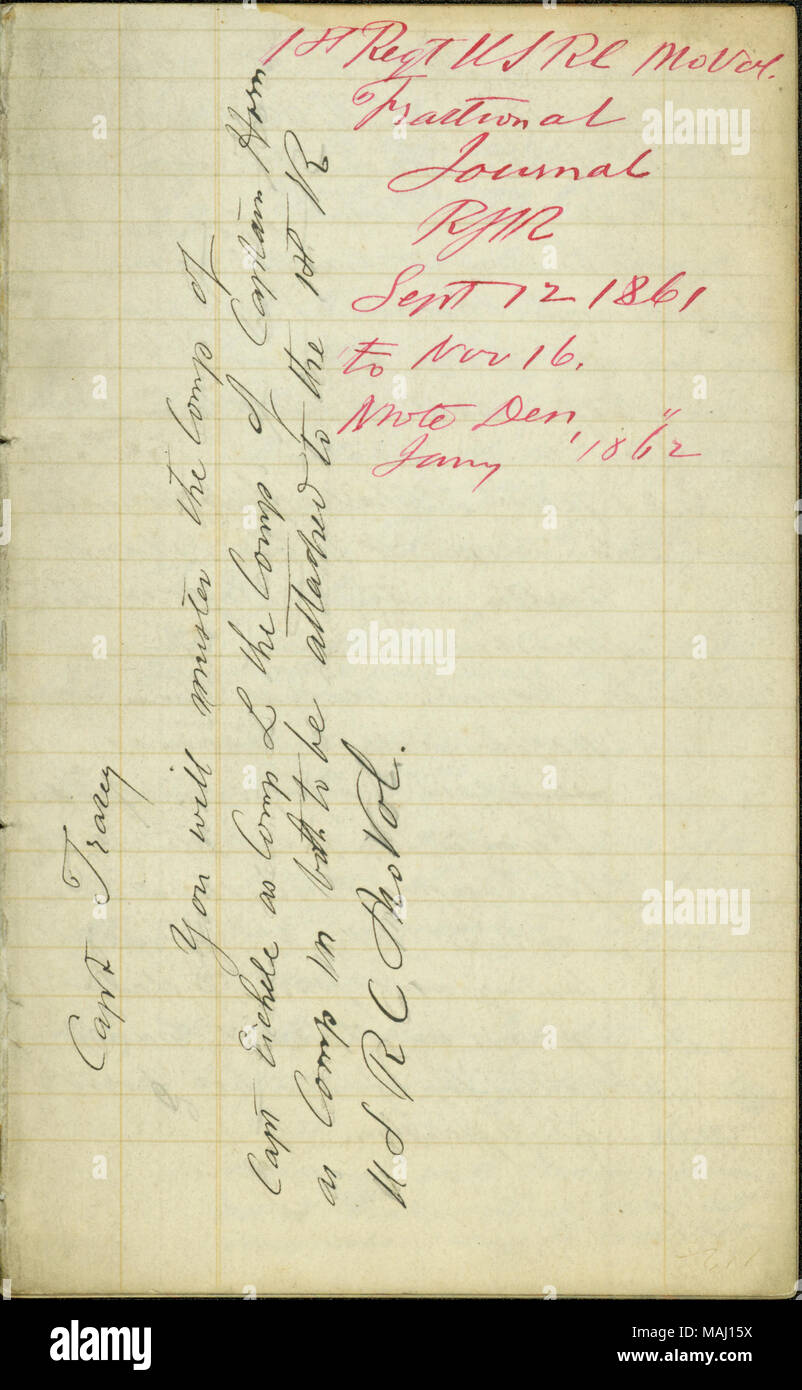 1st Regt U S R C Mo Vol.
Fractional
Journal
RJR
Sept 12 1861
to Nov 16.
Note Den, "
Jany 1862
Capt Tracy
You will muster the Comp of
Capt Eichele as Comp L the Comp of Captain Horn
as Comp M both to be attached to the 1st R
U S R C Mo Vol.
alamy
Image ID: MAJ15X
www.alamy.com